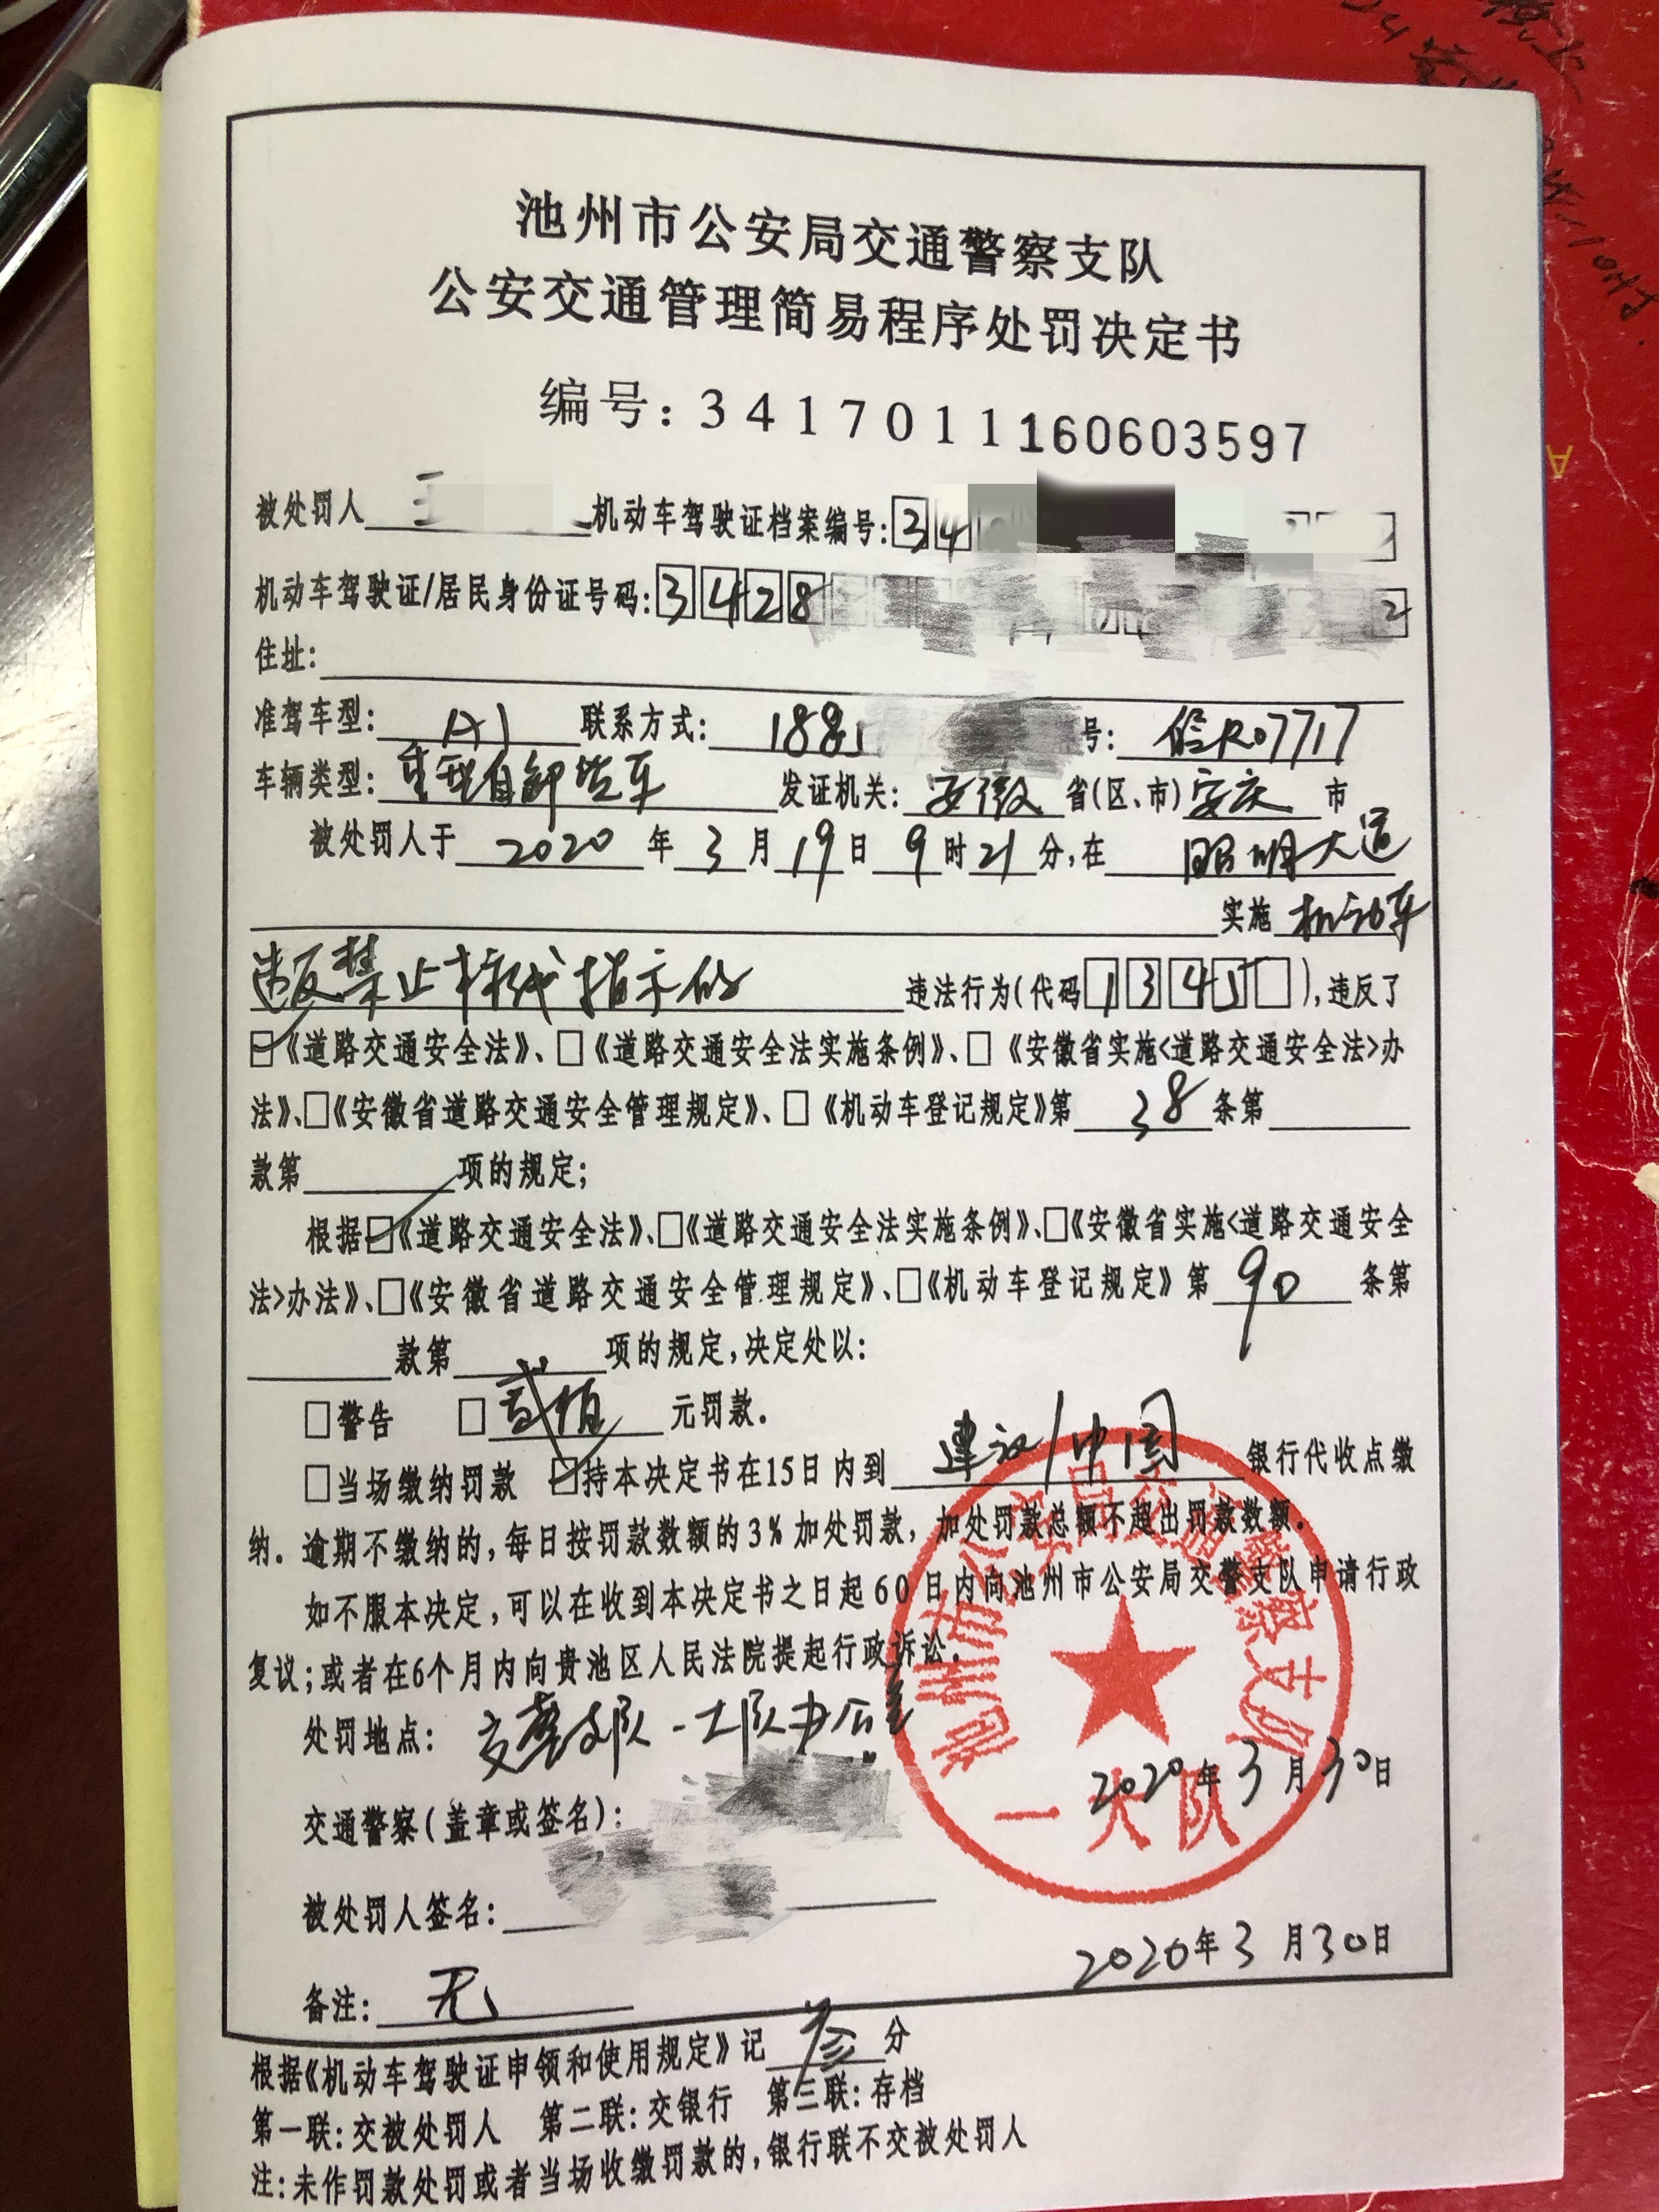 池州市公安局交通警察支队
公安交通管理简易程序处罚决定书
编号：3417011160603597
被处罚人 王 机动车驾驶证档案编号：34
机动车驾驶证/居民身份证号码：3428 2
住址：
准驾车型： A1 联系方式： 188 号： 皖R07717
车辆类型：重型自卸货车 发证机关：安徽 省(区、市)安庆 市
被处罚人于 2020 年 3 月 19 日 9 时 21 分，在 昭明大道
实施 机动车
违反禁止标线指示的 违法行为(代码1345)，违反了
☑《道路交通安全法》、□《道路交通安全法实施条例》、□《安徽省实施<道路交通安全法>办
法》、□《安徽省道路交通安全管理规定》、□《机动车登记规定》第 38 条第
款第 项的规定；
根据☑《道路交通安全法》、□《道路交通安全法实施条例》、□《安徽省实施<道路交通安全
法>办法》、□《安徽省道路交通安全管理规定》、□《机动车登记规定》第 90 条第
款第 项的规定，决定处以：
□警告 □贰佰 元罚款。
□当场缴纳罚款 ☑持本决定书在15日内到 建设/中国 银行代收点缴
纳。逾期不缴纳的，每日按罚款数额的3%加处罚款，加处罚款总额不超出罚款数额。
如不服本决定，可以在收到本决定书之日起60日内向池州市公安局交警支队申请行政
复议；或者在6个月内向贵池区人民法院提起行政诉讼。
处罚地点： 交警支队一大队办公室
池州市公安局交通警察支队
一大队
2020年3月30日
交通警察(盖章或签名)：
被处罚人签名：
2020年3月30日
备注： 无
根据《机动车驾驶证申领和使用规定》记 叁 分
第一联：交被处罚人 第二联：交银行 第三联：存档
注：未作罚款处罚或者当场收缴罚款的，银行联不交被处罚人